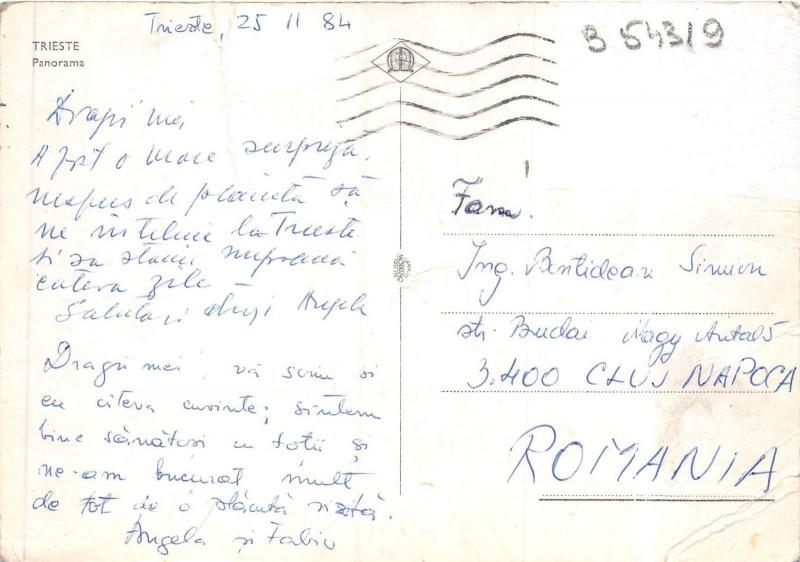 Trieste, 25 II 84
B 54319
TRIESTE
Panorama
Dragii mei,
A fost o mare surpriza,
nespus de placuta sa
ne intilnim la Trieste
si sa stam impreună
cateva zile
Salutari dragi Angela
Dragii mei, vă scriu si
eu citeva cuvinte; sintem
bine sănătosi cu totii și
ne-am bucurat mult
de tot de o plăcută vizită.
Angela și Fabio
Fam.
Ing. Bentidean Simion
str. Budai Nagy Antal 5
3.400 CLUJ NAPOCA
ROMANIA